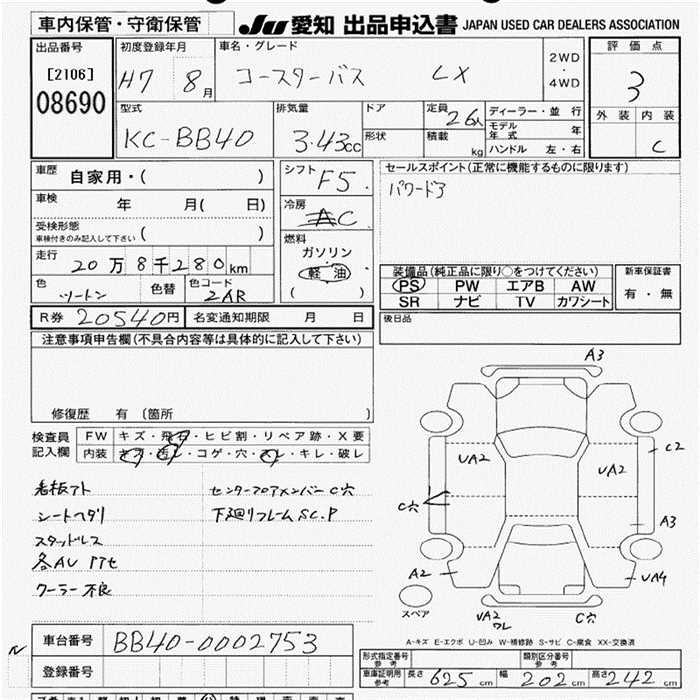 車内保管・守衛保管
JU 愛知 出品申込書 JAPAN USED CAR DEALERS ASSOCIATION
出品番号
[2106]
08690
初度登録年月
H7 8月
車名・グレード
コースターバス LX
2WD
・
4WD
評価点
3
外装 内装
C
型式
KC-BB40
排気量
3.43cc
ドア
形状
定員
26人
積載
kg
ディーラー・並行
モデル年式 年
ハンドル 左・右
車歴
自家用・( )
車検
年 月( 日)
受検形態
車検付きのみ記入して下さい ( )
走行
20万8千280km
色
ツートン
色替
色コード
2AR
シフト
F5
冷房
AC
燃料
ガソリン
軽油
( )
セールスポイント(正常に機能するものに限ります)
パワードア
装備品(純正品に限り○をつけてください)
PS PW エアB AW
SR ナビ TV カワシート
新車保証書
有・無
R券 20540円 名変通知期限 月 日
後日品
注意事項申告欄(不具合内容等は具体的に記入して下さい)
修復歴 有 (箇所 )
検査員
記入欄
FW キズ・飛石・ヒビ割・リペア跡・X要
内装 キズ・汚レ・コゲ・穴・スレ・キレ・破レ
看板アト
シートヘタリ
スタッドレス
クーラー不良
センターフロアメンバーC穴
下廻リフレームSC.P
A3
C2
UA2
UA2
C穴
A3
A2
UA4
スペア
UA2
ワレ
C穴
A-キズ E-エクボ U-凹み W-補修跡 S-サビ C-腐食 XX-交換済
車台番号 BB40-0002753
登録番号
形式指定番号
参考
類別区分番号
参考
車庫証明用
参考
長さ 625cm 幅 202cm 高さ 242cm